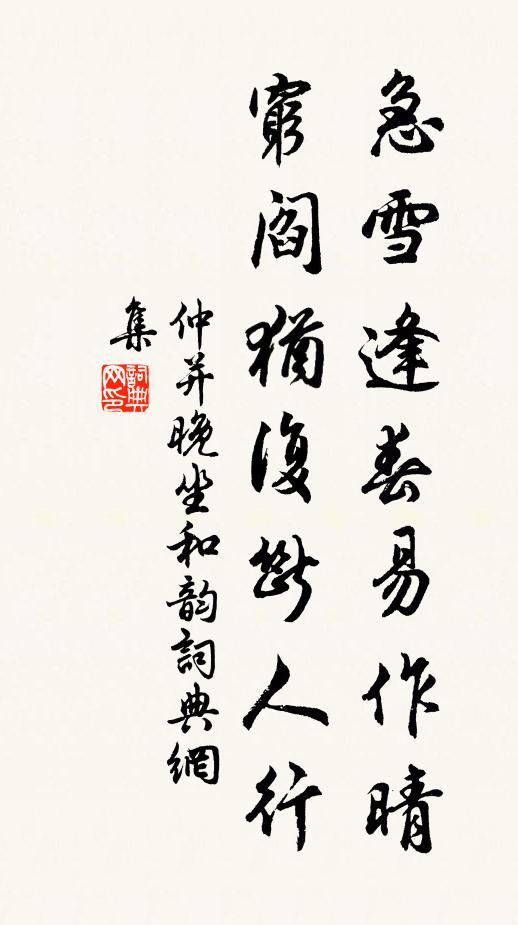 急雪逢春易作晴
窮閻猶復斷人行
仲并晚坐和韵詞典網
集
詞典
网印